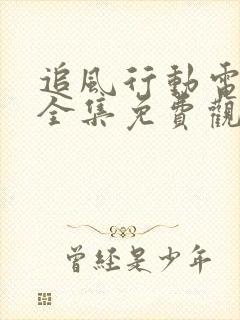 追風行動電
全集免費觀
曾經是少年